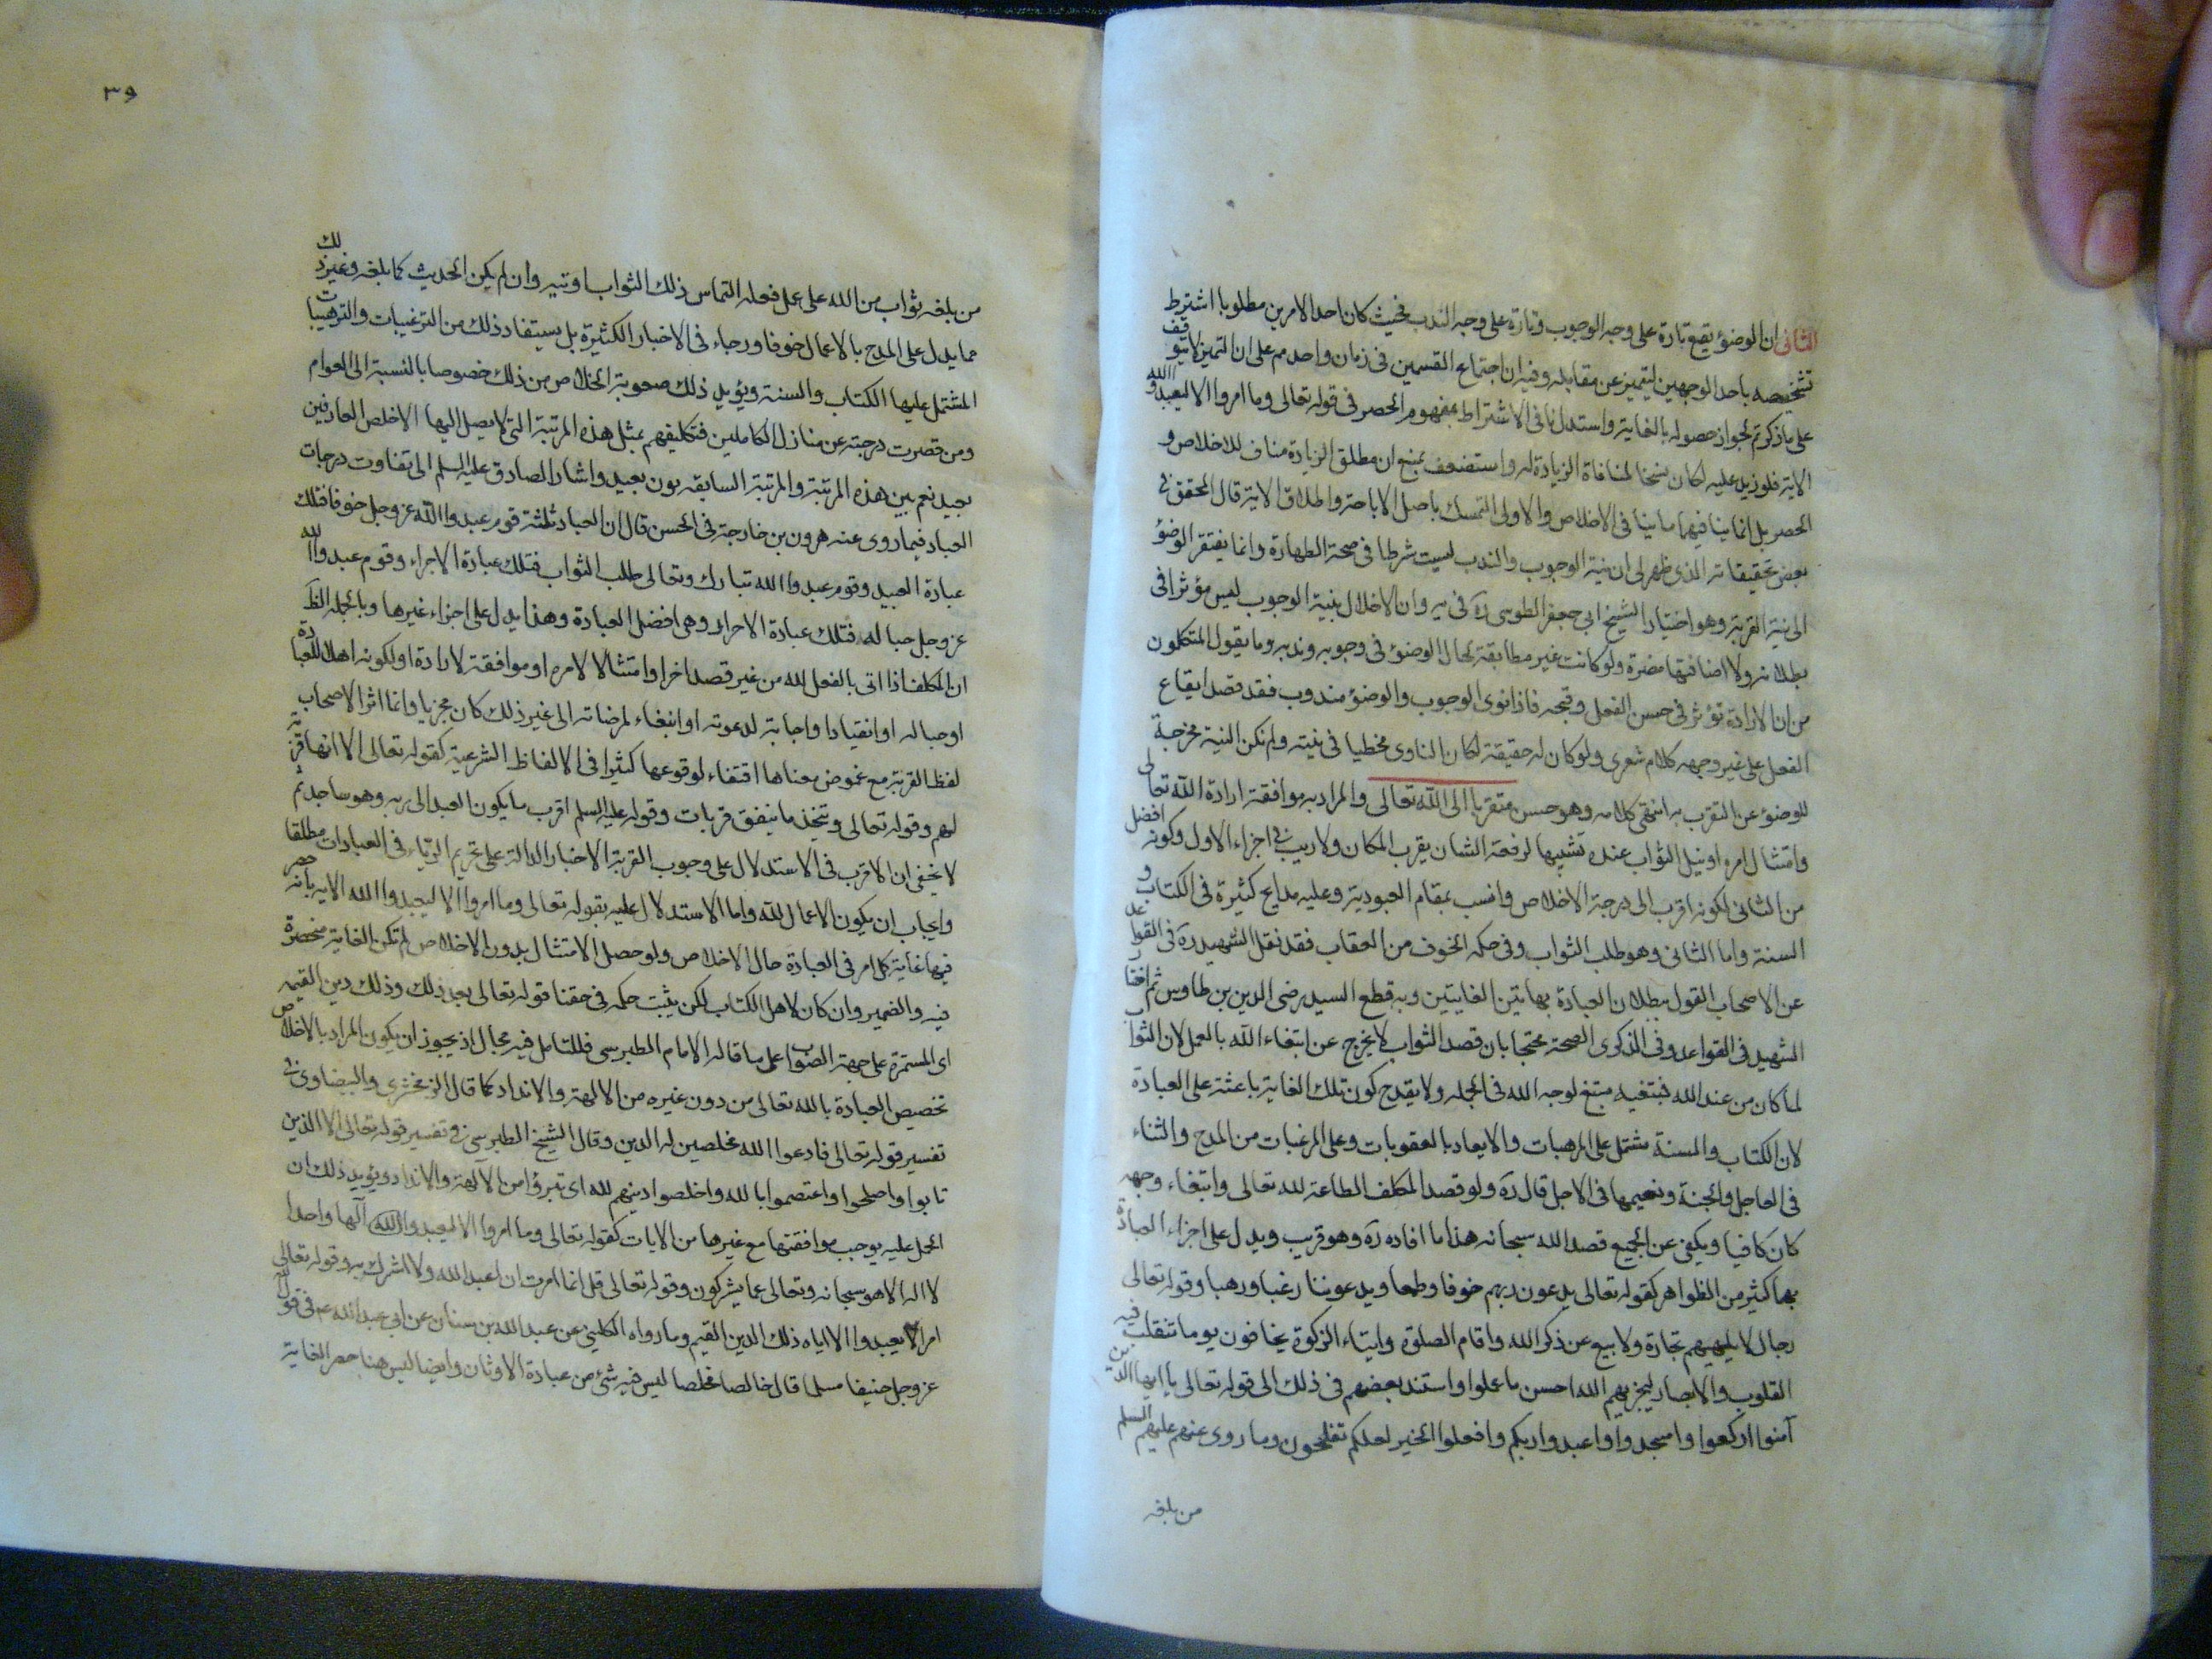 الثانى ان الوضؤ يقع تارة على وجه الوجوب وتارة على وجه الندب فحيث كان احد الامرين مطلوبا اشترط
تشخيصه باحد الوجهين ليتميز عن مقابله وفيه ان اجتماع القسمين فى زمان واحد مم على ان التميز لا يتوقف
على ما ذكرتم لجواز حصوله بالغاية واستدل نافى الاشتراط بمفهوم الحصر فى قوله تعالى وما امروا الا ليعبدوا الله
الاية فلو زيد عليه لكان نسخا لمنافاة الزيادة له واستضعف بمنع ان مطلق الزيادة مناف للاخلاص و
الحصر بل انما ينافيهما ما ينافى الاخلاص والاولى التمسك باصل الاباحة واطلاق الاية قال المحقق فى
بعض تحقيقاته الذى ظهر لى ان نية الوجوب والندب ليست شرطا فى صحة الطهارة وانما يفتقر الوضؤ
الى نية القربة وهو اختيار الشيخ ابى جعفر الطوسى ره فى يه وان الاخلال بنية الوجوب ليس مؤثرا فى
بطلانه ولا اضافتها مضرة ولو كانت غير مطابقة لحال الوضؤ فى وجوبه وندبه وما يقول المتكلمون
من ان الارادة تؤثر فى حسن الفعل وقبحه فاذا نوى الوجوب والوضؤ مندوب فقد قصد ايقاع
الفعل على غير وجهه كلام شعرى ولو كان له حقيقة لكان الناوى مخطيا فى نيته ولم تكن النية مخرجة
للوضؤ عن التقرب به انتهى كلامه وهو حسن متقربا الى الله تعالى والمراد به موافقة ارادة الله تعالى
وامتثال امره او نيل الثواب عنده تشبيها لرفعة الشان بقرب المكان ولا ريب فى اجزاء الاول وكونه افضل
من الثانى لكونه اقرب الى درجة الاخلاص وانسب بمقام العبودية وعليه مدايح كثيرة فى الكتاب و
السنة واما الثانى وهو طلب الثواب وفى حكمه الخوف من العقاب فقد نقل الشهيد ره فى القواعد
عن الاصحاب القول ببطلان العبادة بهاتين الغايتين وبه قطع السيد رضى الدين بن طاوس ثم اختار
الشهيد فى القواعد وفى الذكرى الصحة محتجا بان قصد الثواب لا يخرج عن ابتغاء الله بالعمل لان الثواب
لما كان من عند الله فمبتغيه مبتغ لوجه الله فى الجملة ولا يقدح كون تلك الغاية باعثة على العبادة
لان الكتاب والسنة مشتمل على المرهبات والايعاد بالعقوبات وعلى المرغبات من المدح والثناء
فى العاجل والجنة ونعيمها فى الاجل قال ره ولو قصد المكلف الطاعة لله تعالى وابتغاء وجهه
كان كافيا ويكفى عن الجميع قصد الله سبحانه هذا ما افاده ره وهو قريب ويدل على اجزاء العبادة
بها كثير من الظواهر كقوله تعالى يدعون ربهم خوفا وطمعا ويدعوننا رغبا ورهبا وقوله تعالى
رجال لا تلهيهم تجارة ولا بيع عن ذكر الله واقام الصلوة وايتاء الزكوة يخافون يوما تتقلب فيه
القلوب والابصار ليجزيهم الله احسن ما عملوا واستند بعضهم فى ذلك الى قوله تعالى يا ايها الذين
آمنوا اركعوا واسجدوا واعبدوا ربكم وافعلوا الخير لعلكم تفلحون وما روى عنهم عليهم السلم
من بلغه
٣٩
من بلغه ثواب من الله على عمل ففعله التماس ذلك الثواب اوتيه وان لم يكن الحديث كما بلغه وغير ذلك
مما يدل على المدح بالاعمال خوفا ورجاء فى الاخبار الكثيرة بل يستفاد ذلك من الترغيبات والترهيبات
المشتمل عليها الكتاب والسنة ويؤيد ذلك صعوبة الخلاص من ذلك خصوصا بالنسبة الى العوام
ومن قصرت درجته عن منازل الكاملين فتكليفهم بمثل هذه المرتبة التى لا يصل اليها الا خلص العارفين
بعيد نعم بين هذه المرتبة والمرتبة السابقه بون بعيد واشار الصادق عليه السلم الى تفاوت درجات
العباد فيما روى عنه هرون بن خارجة فى الحسن قال ان العباد ثلثة قوم عبدوا الله عز وجل خوفا فتلك
عبادة العبيد وقوم عبدوا الله تبارك وتعالى طلب الثواب فتلك عبادة الاجراء وقوم عبدوا الله
عز وجل حبا له فتلك عبادة الاحرار وهى افضل العبادة وهذا يدل على اجزاء غيرها وبالجملة الظ
ان المكلف اذا اتى بالفعل لله من غير قصد اخر او امتثالا لامره او موافقة لارادة او لكونه اهلا للعبادة
او حبا له او انقيادا واجابة لدعوته او ابتغاء لمرضاته الى غير ذلك كان مجزيا وانما اثر الاصحاب
لفظ القربة مع غموض معناها اقتفاء لوقوعها كثيرا فى الالفاظ الشرعية كقوله تعالى الا انها قربة
لهم وقوله تعالى ويتخذ ما ينفق قربات وقوله عليه السلم اقرب ما يكون العبد الى ربه وهو ساجد ثم
لا يخفى ان الاقرب فى الاستدلال على وجوب القربة الاخبار الدالة على تحريم الرياء فى العبادات مطلقا
وايجاب ان يكون الاعمال لله واما الاستدلال عليه بقوله تعالى وما امروا الا ليعبدوا الله الايه بانه حصر
فيها غاية كل امر فى العبادة حال الاخلاص ولو حصل الامتثال بدون الاخلاص لم تكن الغاية منحصرة
فيه والضمير وان كان لاهل الكتاب لكن يثبت حكمه فى حقنا قوله تعالى بعد ذلك وذلك دين القيمه
اى المستمرة على جهة الصواب على ما قاله الامام الطبرسى فللتامل فيه مجال اذ يجوز ان يكون المراد بالاخلاص
تخصيص العبادة بالله تعالى من دون غيره من الالهة والانداد كما قال الزمخشرى والبيضاوى فى
تفسير قوله تعالى فادعوا الله مخلصين له الدين وقال الشيخ الطبرسى فى تفسير قوله تعالى الا الذين
تابوا واصلحوا واعتصموا بالله واخلصوا دينهم لله اى تبرؤا من الالهة والانداد ويؤيد ذلك ان
الحمل عليه يوجب موافقتها مع غيرها من الايات كقوله تعالى وما امروا الا ليعبدوا الله آلها واحدا
لا اله الا هو سبحانه وتعالى عما يشركون وقوله تعالى قل انما امرت ان اعبد الله ولا اشرك به وقوله تعالى
امر الا تعبدوا الا اياه ذلك الدين القيم وما رواه الكلينى عن عبد الله بن سنان عن ابى عبد الله ع فى قول الله
عز وجل حنيفا مسلما قال خالصا مخلصا ليس فيه شئ من عبادة الاوثان وايضا ليس هنا حصر الغاية